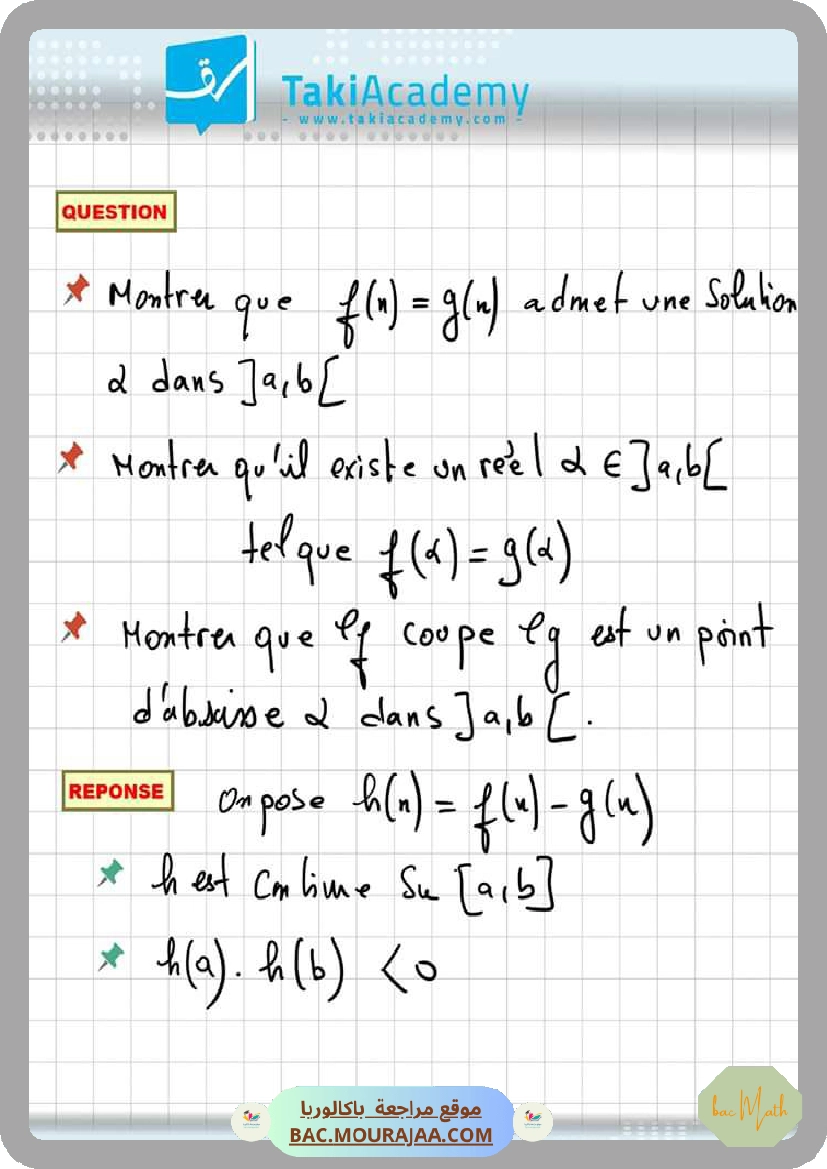 TakiAcademy
- www.takiacademy.com -
QUESTION
Montrer que f(x) = g(x) admet une Solution
α dans ]a,b[
Montrer qu'il existe un réel α ∈ ]a,b[
tel que f(α) = g(α)
Montrer que ℓf coupe ℓg est un point
d'abscisse α dans ]a,b[.
REPONSE On pose h(x) = f(x) - g(x)
h est continue Sur [a,b]
h(a). h(b) < 0
موقع مراجعة باكالوريا
BAC.MOURAJAA.COM
bac Math